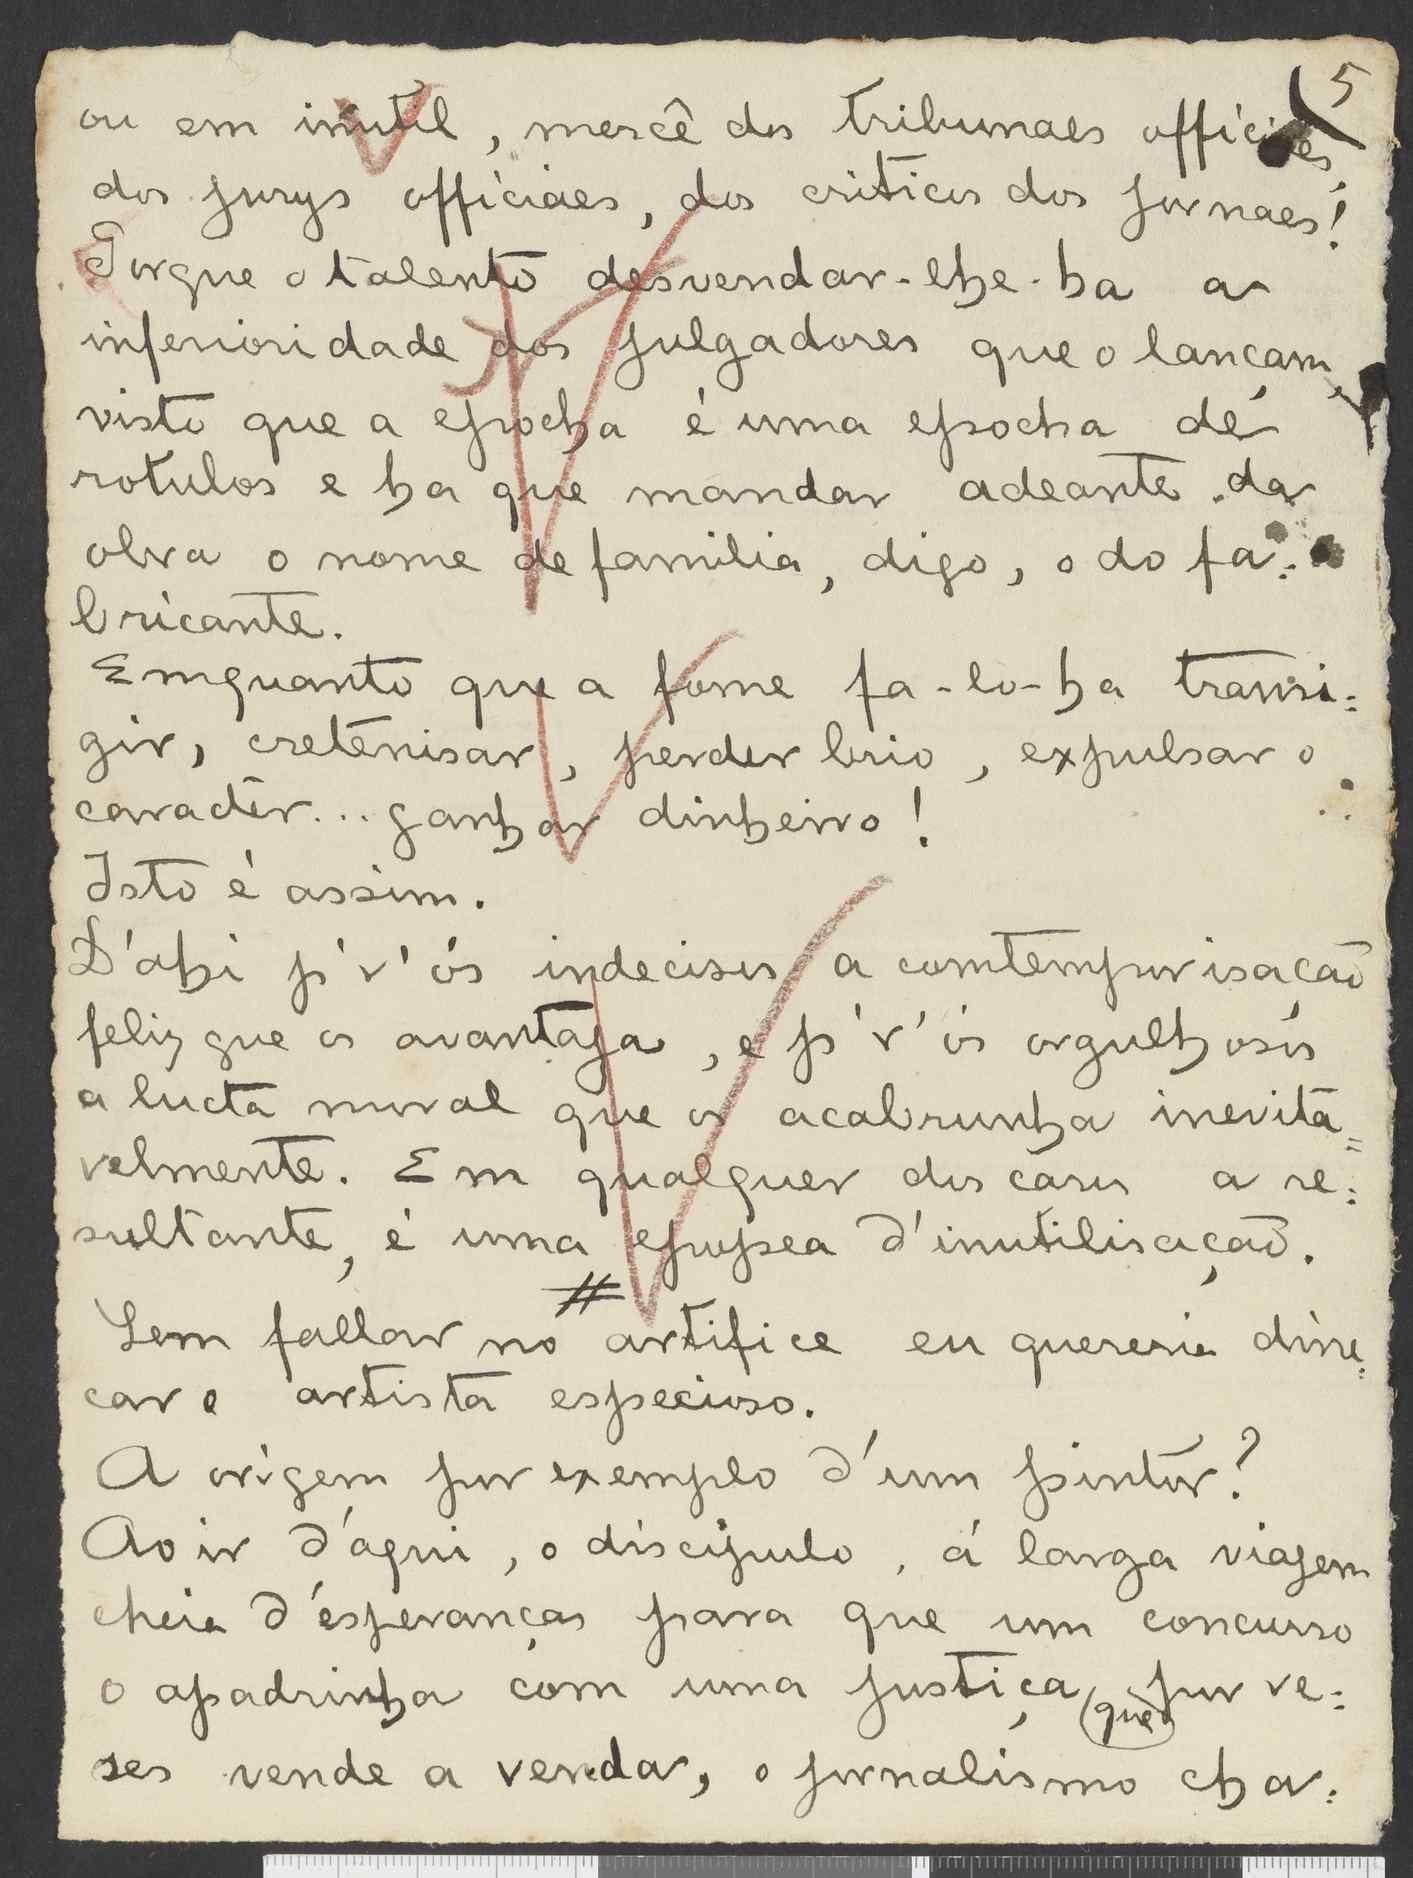 5
ou em inutil, mercê dos tribunaes officiaes,
dos jurys officiaes, dos criticos dos jornaes!
Porque o talento desvendar-lhe-ha a
inferioridade dos julgadores que o lançam,
visto que a epocha é uma epocha de
rotulos e ha que mandar adeante da
obra o nome de familia, digo, o do fa:
bricante.
Emquanto que a fome fa-lo-ha transi:
gir, cretenisar, perder brio, expulsar o
caracter... ganhar dinheiro!
Isto é assim.
D'ahi p'r'ós indecisos a comtemporisação
feliz que os avantaja, e p'r'ós orgulhosos
a lucta moral que os acabrunha inevita=
velmente. Em qualquer dos casos a re:
sultante, é uma epopea d'inutilisação.
#
Sem fallar no artifice eu quereria
car o artista especioso.
A origem por exemplo d'um pintor?
Ao ir d'aqui, o discipulo, á larga viagem
cheia d'esperanças para que um concurso
o apadrinha com uma justiça (que) por ve:
ses vende a venda, o jornalismo cha: